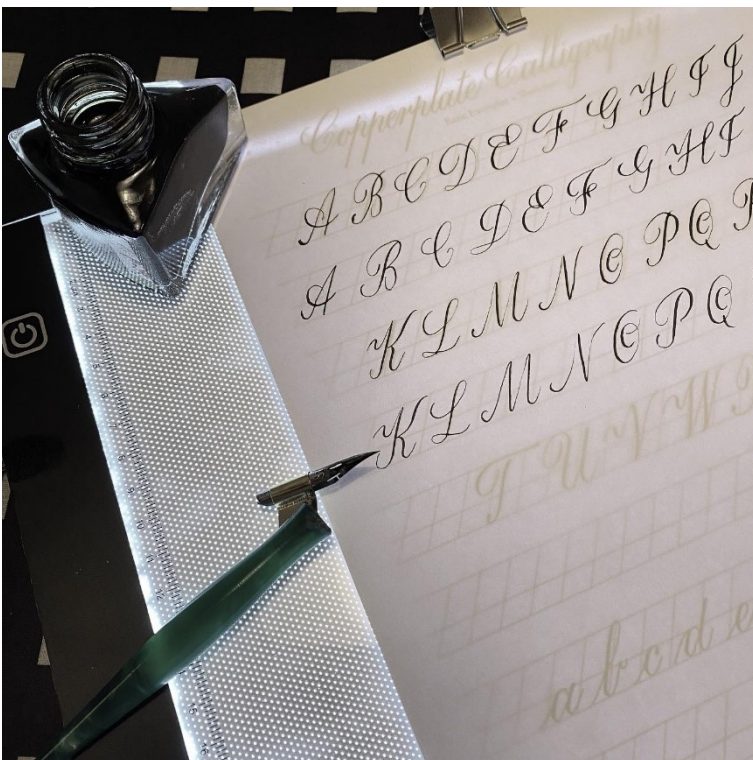 Copperplate Calligraphy
A B C D E F G H I J
A B C D E F G H I
K L M N O P Q
K L M N O P Q
T U V W
a b c d e